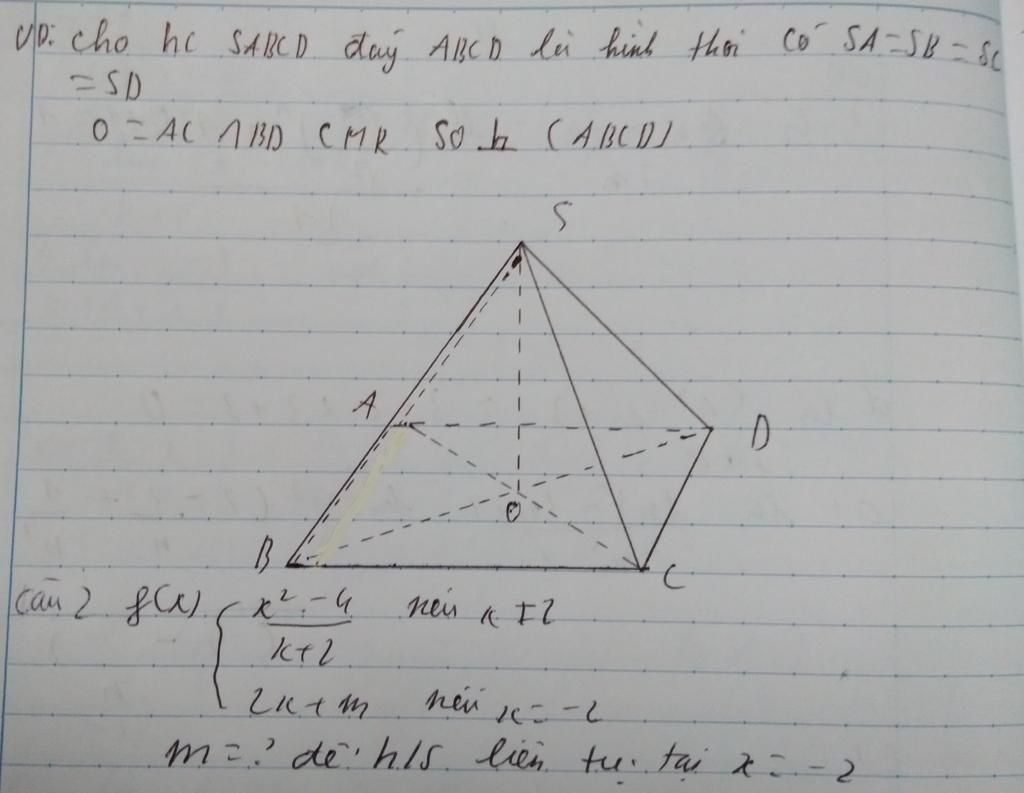 VD: cho hc SABCD đáy ABCD là hình thoi có SA = SB = SC
= SD
O = AC ∩ BD CMR SO ⊥ (ABCD)
S
A
D
O
B
C
Câu 2 f(x) { x² - 4 / x+2 nếu x ≠ 2
2x + m nếu x = -2
m = ? để h/s liên tụ. tại x = -2